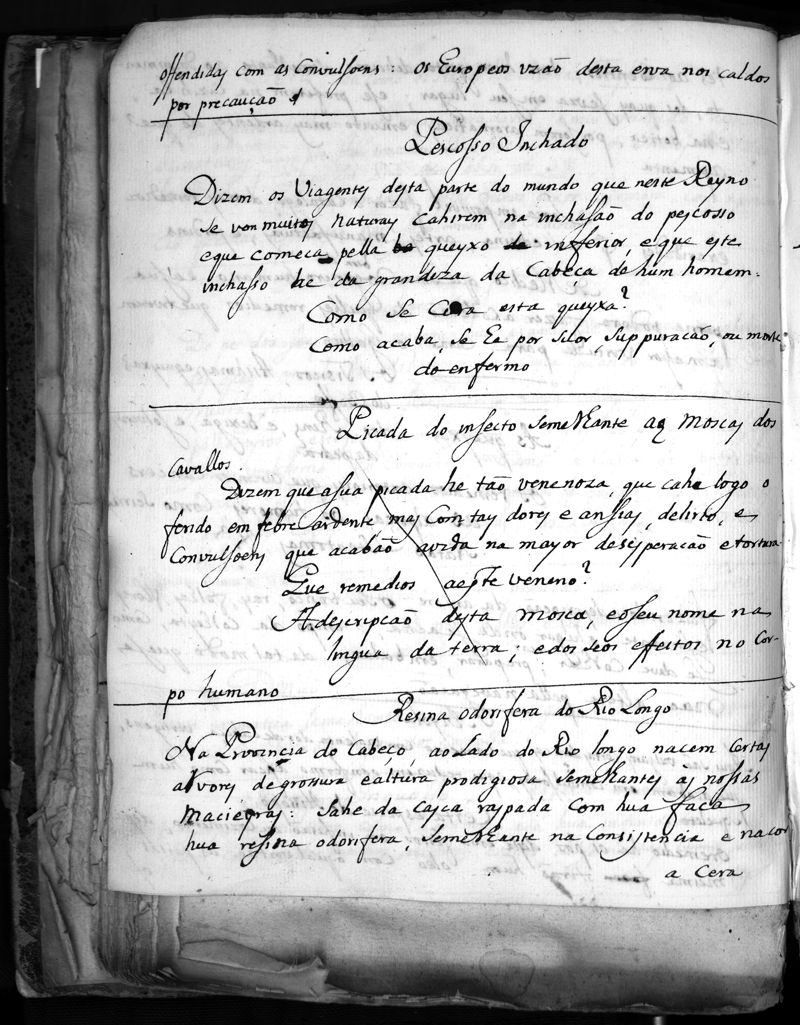 offendidas com as Convulsoens : os Europeos uzão desta erva nos caldos
por precaução
Pescosso Inchado
Dizem os Viagentes desta parte do mundo que neste Reyno
se vem muitos naturaes cahirem na inchasão do pescosso
e que comeca pella queyxo inferior, e que este
inchasso he da grandeza da Cabeça de hum homem:
Como se Cura esta queyxa?
Como acaba, se he por suor, suppuracão, ou morte
do enfermo
Picada do insecto semelhante as Moscas dos
cavallos.
Dizem que a sua picada he tão venenoza, que cahe logo o
ferido em febre ardente mas Com tas dores e ansias, delirio, e
Convulsoens que acabão a vida na mayor desesperacão e tortura
Que remedios a este veneno?
A descripcão desta mosca, e o seu nome na
lingua da terra; e dos seos effectos no Cor-
po humano
Resina odorifera do Rio Longo
Na Provincia do Cabeço, ao Lado do Rio longo nacem certas
arvores de grossura e altura prodigiosa semelhantes as nossas
Macieyras: Sahe da casca raspada com hua faca
hua resina odorifera, semelhante na Consistencia e na cor
a Cera